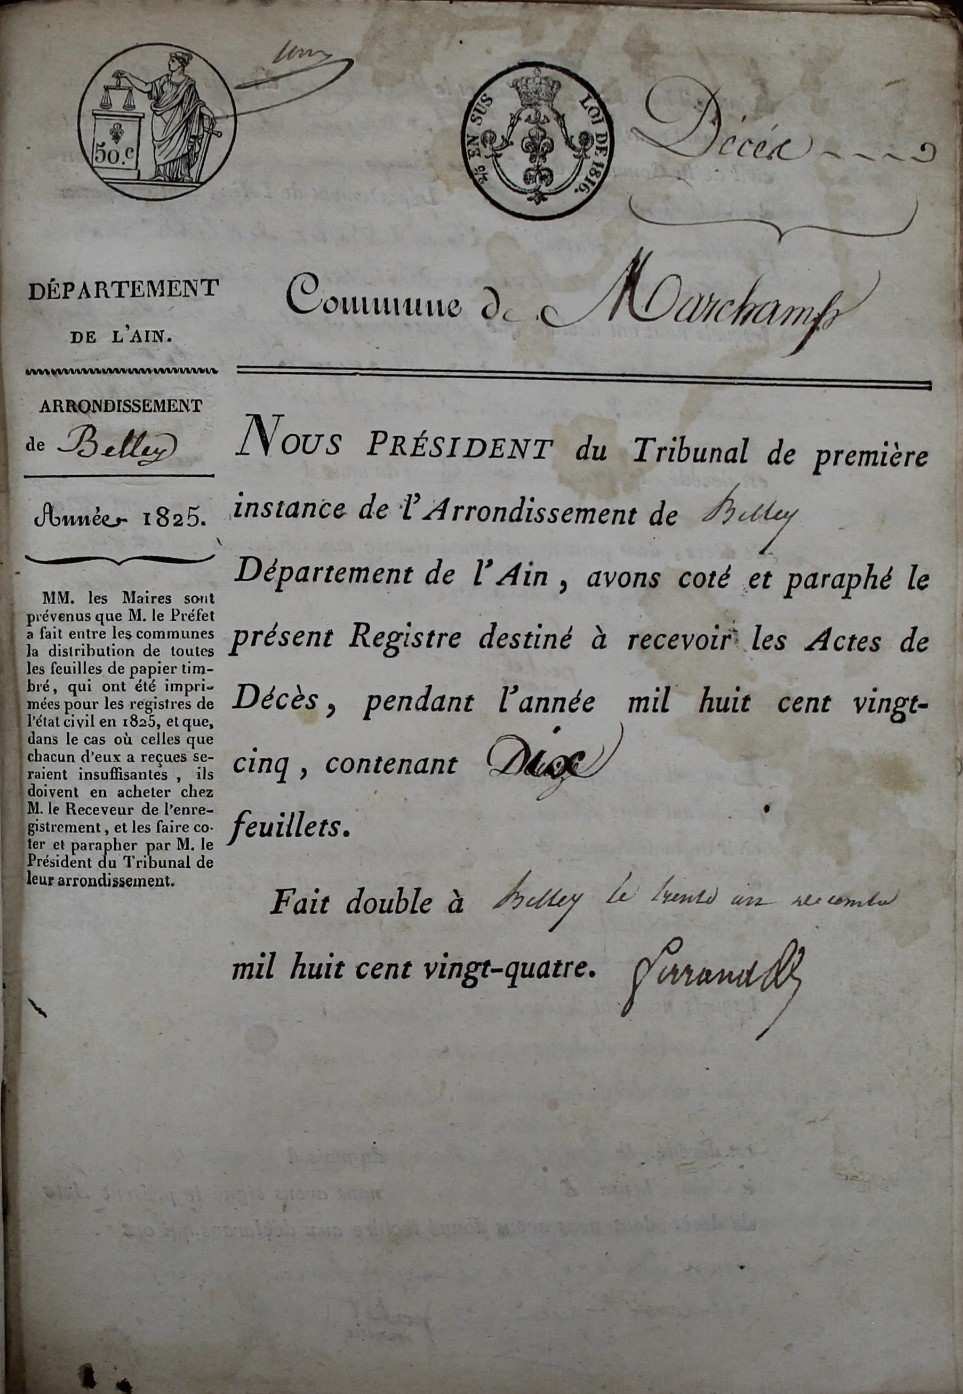 50.c
EN SUS LOI DE 1816.
Décès
DÉPARTEMENT
DE L'AIN.
Commune de Marchamp
ARRONDISSEMENT
de Belley
Année 1825.
MM. les Maires sont
prévenus que M. le Préfet
a fait entre les communes
la distribution de toutes
les feuilles de papier tim-
bré, qui ont été impri-
mées pour les registres de
l'état civil en 1825, et que,
dans le cas où celles que
chacun d'eux a reçues se-
raient insuffisantes, ils
doivent en acheter chez
M. le Receveur de l'enre-
gistrement, et les faire co-
ter et parapher par M. le
Président du Tribunal de
leur arrondissement.
NOUS PRÉSIDENT du Tribunal de première
instance de l'Arrondissement de Belley
Département de l'Ain, avons coté et paraphé le
présent Registre destiné à recevoir les Actes de
Décès, pendant l'année mil huit cent vingt-
cinq, contenant
feuillets.
Fait double à Belley le trente un decembre
mil huit cent vingt-quatre.